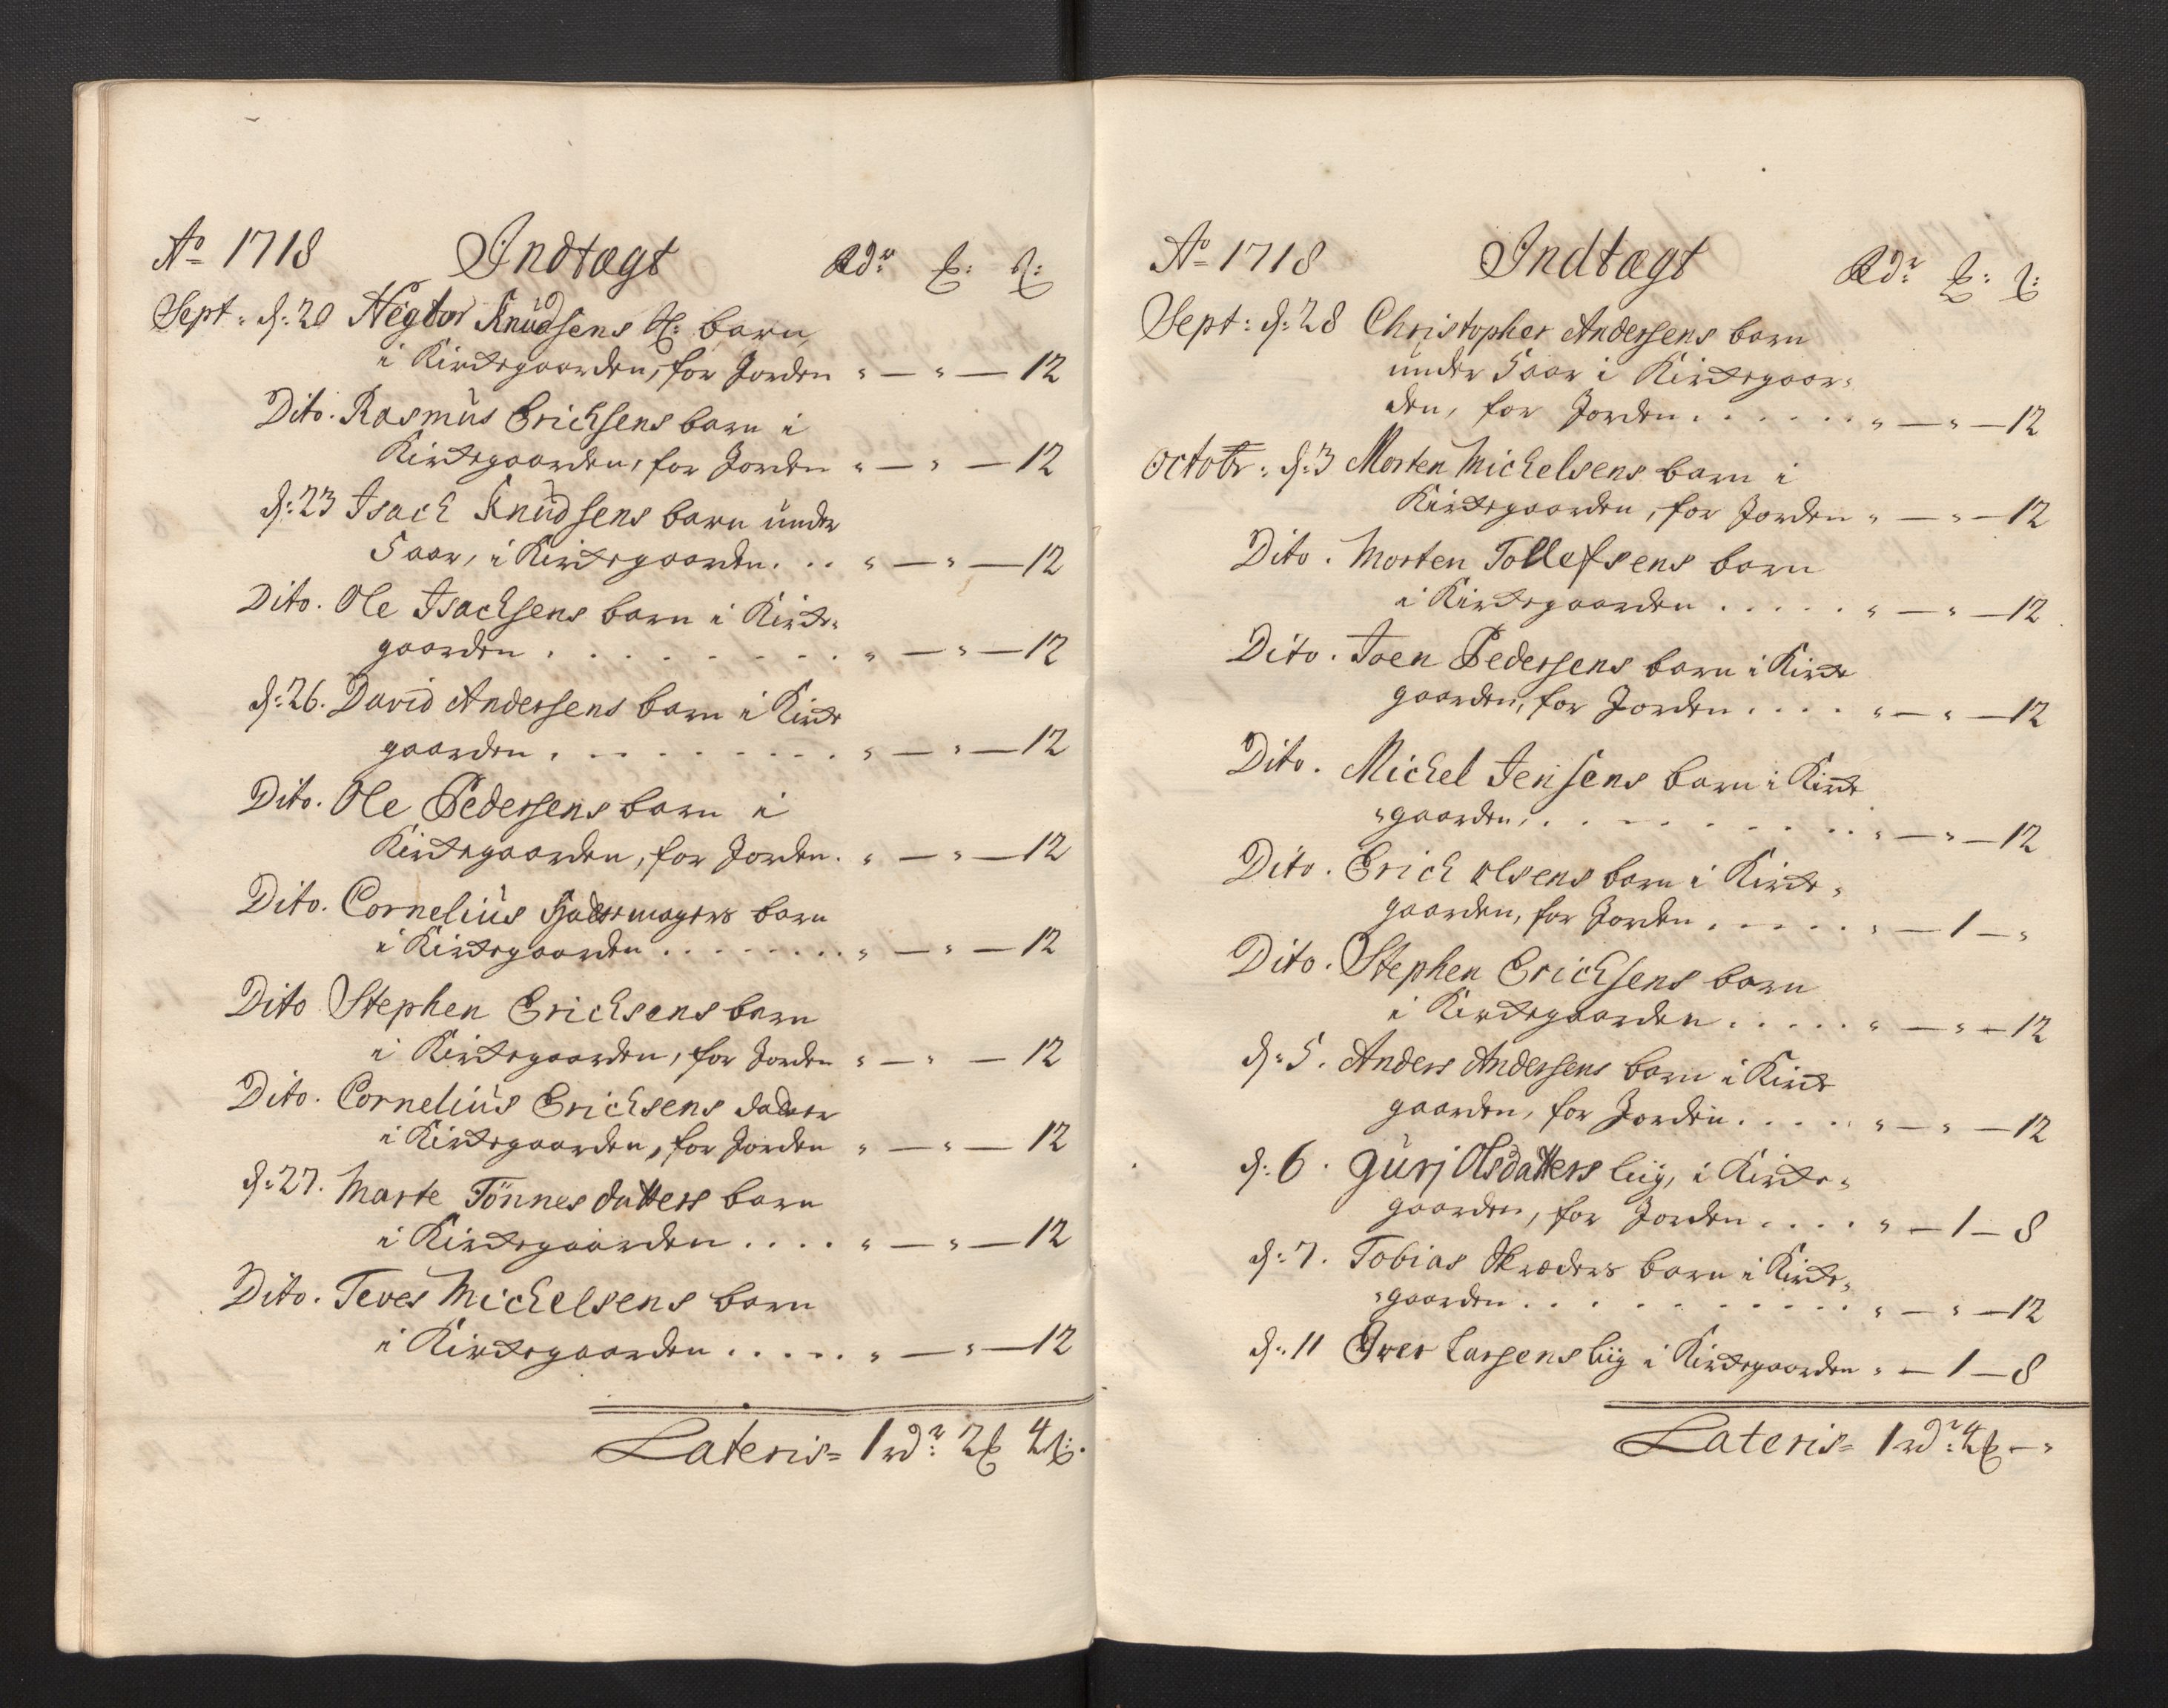 Ao 1718 Indtægt Rdr: ẞ: ẞ:
Sept: d: 20 Negtor Knüdsens barn
i Kirkegaarden, for Jorden " — " — 12
Dito. Rasmus Erichsens barn i
Kirkegaarden, for Jorden " — " — 12
d: 23 Isach Knüdsens barn ünder
5 aar, i Kirkegaarden . . . " — " — 12
Dito. Ole Isachsens barn i Kirke-
gaarden . . . . . . . . . " — " — 12
d: 26. David Andersens barn i Kirke
gaarden . . . . . . . . . " — " — 12
Dito. Ole Pedersens barn i
Kirkegaarden, for Jorden. " — " — 12
Dito. Corneliüs barn
i Kirkegaarden . . . . . . . . " — " — 12
Dito Stephen Erichsens barn
i Kirkegaarden, for Jorden " — " — 12
Dito. Corneliüs Erichsens datter
i Kirkegaarden, for Jorden " — " — 12
d: 27. Marte Tönnes datters barn
i Kirkegaarden . . . . " — " — 12
Dito. Teves Michelsens barn
i Kirkegaarden . . . . . " — " — 12
Lateris= 1 rdr: 2 ẞ 4 ẞ:
Ao 1718 Indtægt Rdr: ẞ: ẞ:
Sept: d: 28 Christopher Andersens barn
ünder 5 aar i Kirkegaar-
den, for Jorden . . . . . . " — " — 12
Octobr: d: 3 Morten Michelsens barn i
Kirkegaarden, for Jorden " — " — 12
Dito. Morten Tollefsens barn
i Kirkegaarden . . . . . " — " — 12
Dito. Joen Pedersens barn i Kirke
gaarden, for Jorden . . . . " — " — 12
Dito. Michel Jensens barn i Kirke
"gaarden, . . . . . . . . " — " — 12
Dito. Erich olsens barn i Kirke-
gaarden, for Jorden . . . . . " — 1 — "
Dito. Stephen Erichsens barn
i Kirkegaarden . . . . . " — " — 12
d: 5. Anders Andersens barn i Kirke
gaarden, for Jorden . . . . " — " — 12
d: 6. Gürj Olsdatters liig, i Kirke-
gaarden, for Jorden . . . . " — 1 — 8
d: 7. Tobias Skræders barn i Kirke-
"gaarden . . . . . . . . . " — " — 12
d: 11 Iver Larsens liig i Kirkegaarden " — 1 — 8
Lateris= 1 rdr: 4 ẞ — "